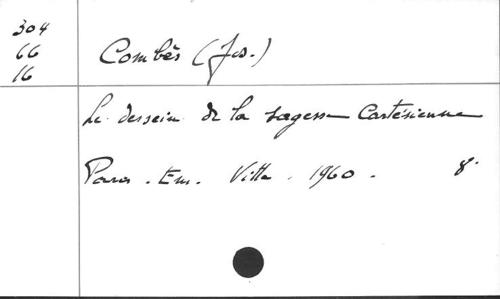 304
66
16
Combès (Js.)
Le dessein de la sagesse Cartésienne
Paris. Em. Vitte. 1960. 8°